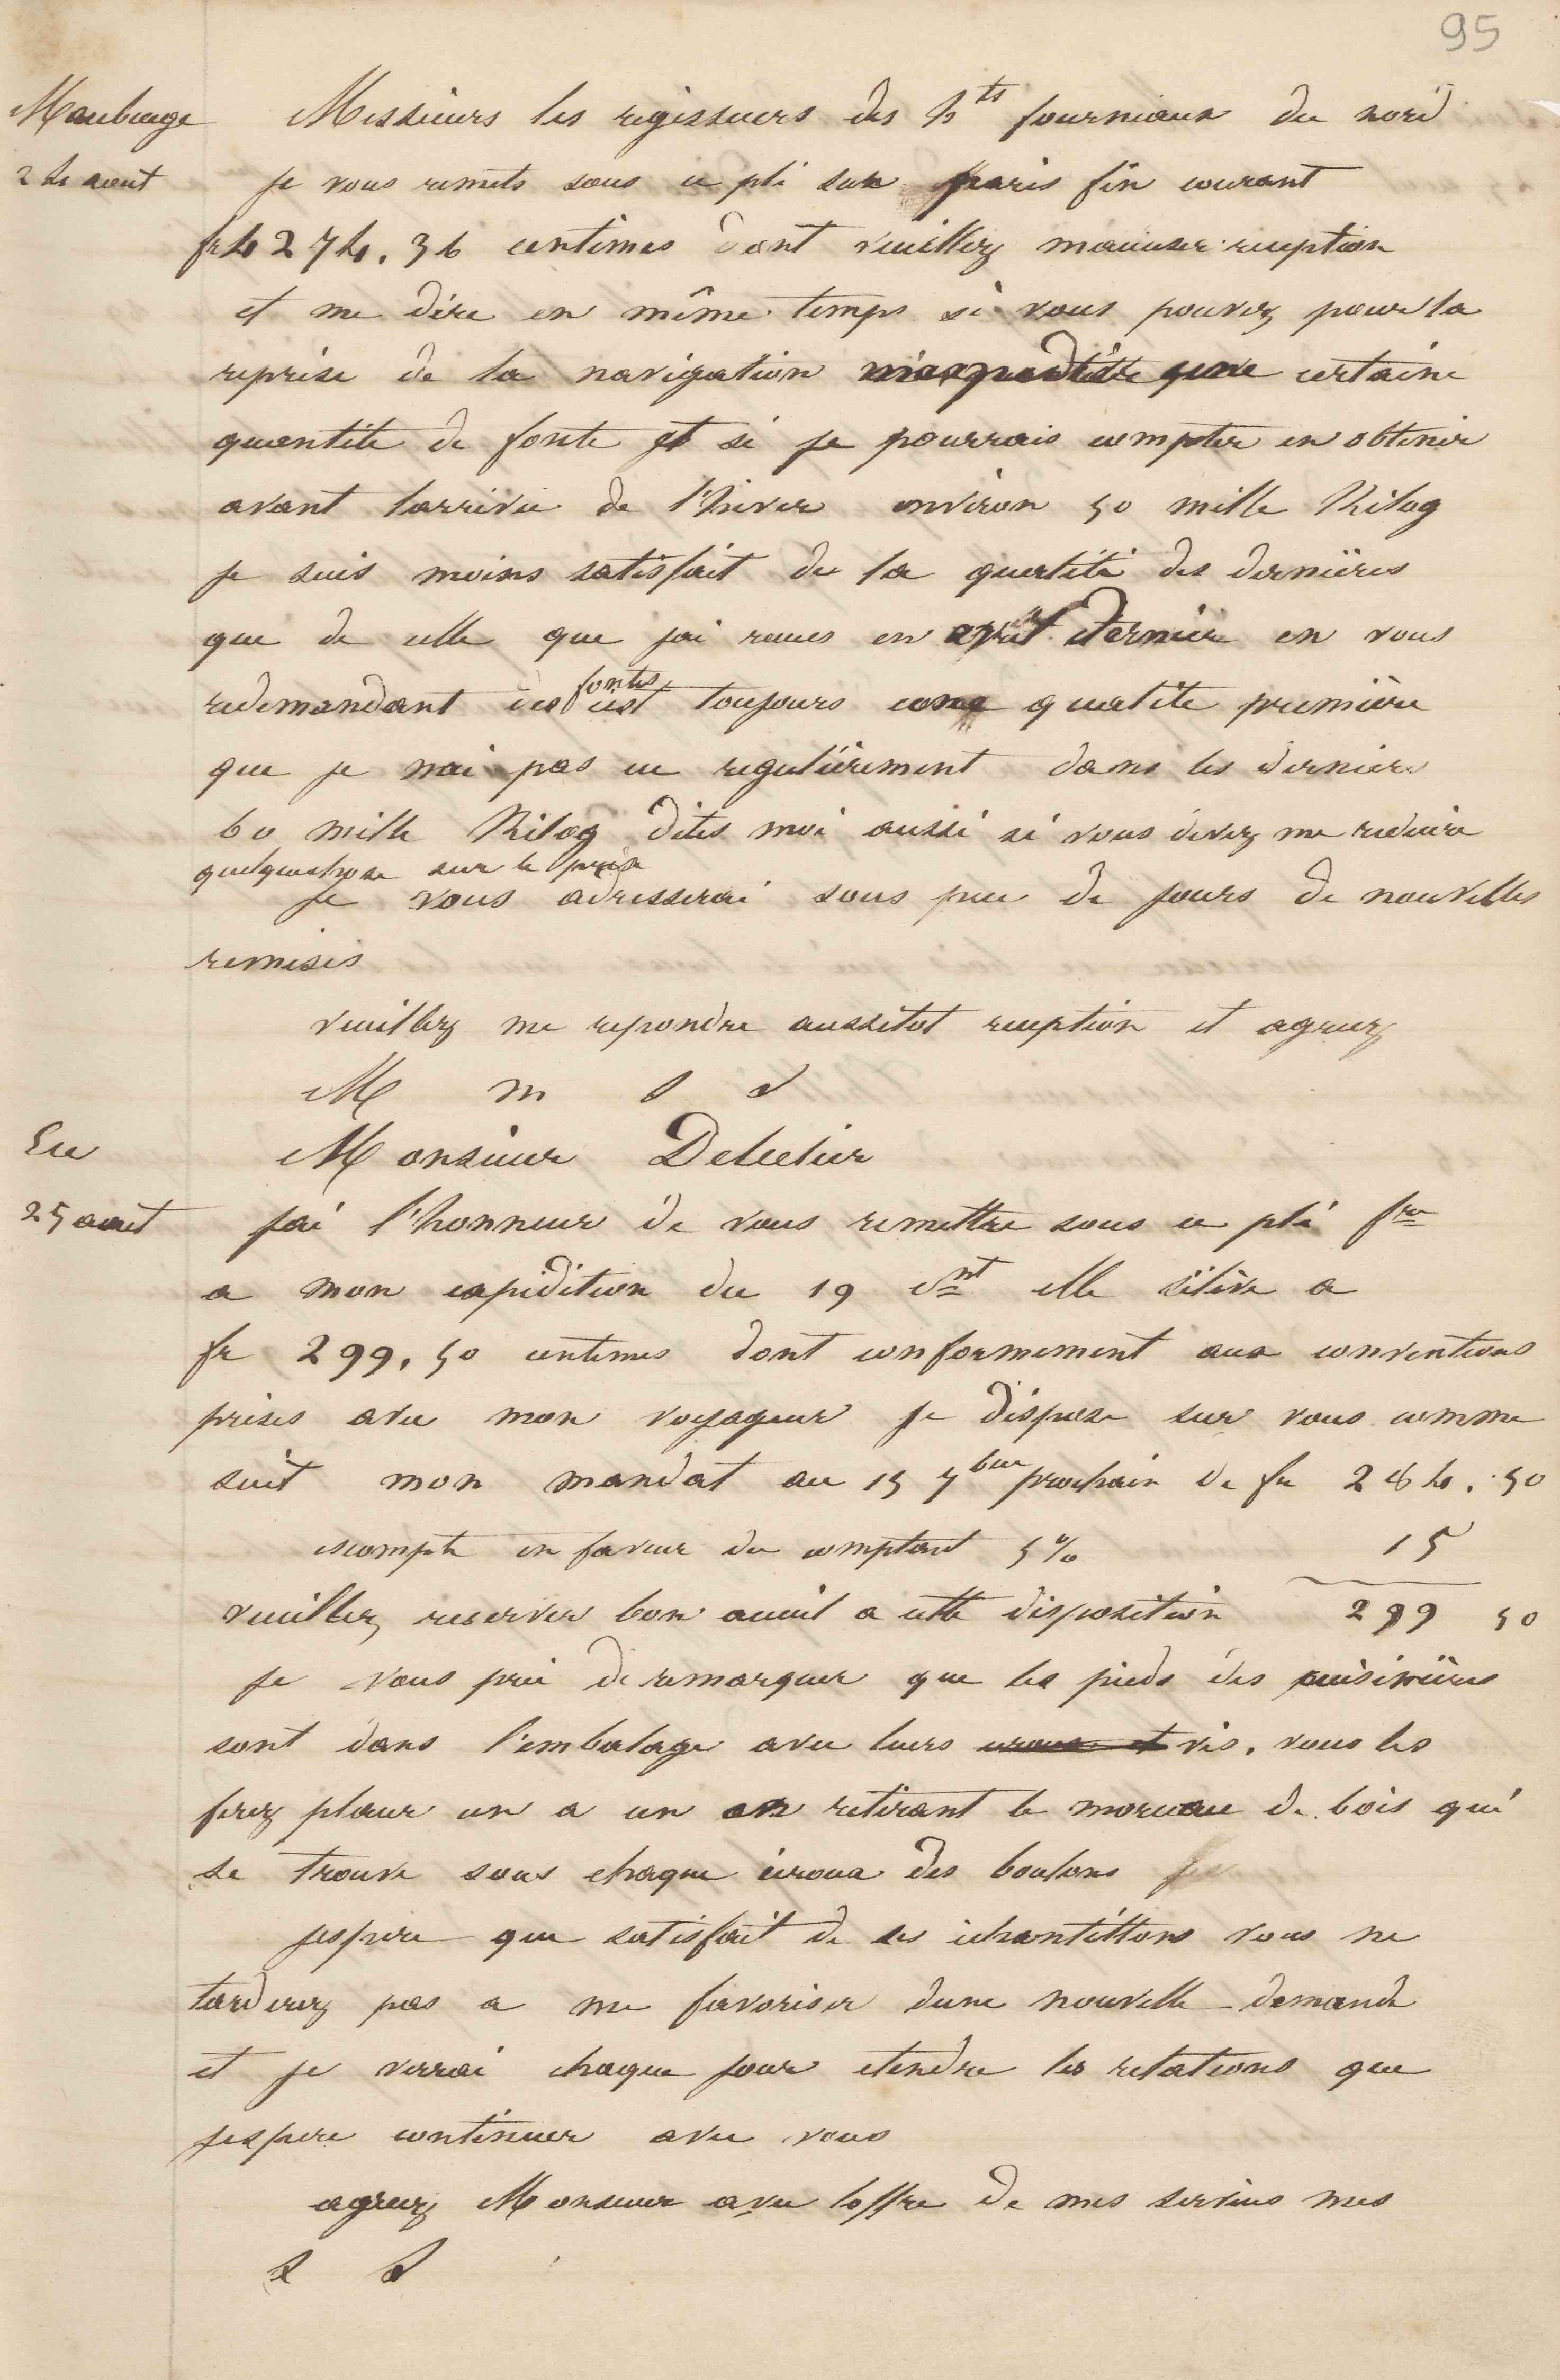 95
Maubeuge Messieurs les regisseurs des hts fourniaux du nord
24 aout je vous remets sous ce pli sur paris fin courant
fr 4274.36 centimes dont veuillez m'accuser reception
et me dire en même temps si vous pouvez pour la
reprise de la navigation m'expedier une certaine
quantité de fonte et si je pourrais compter en obtenir
avant larrivée de l'hiver environ 50 mille Kilog
je suis moins satisfait de la qualité des dernières
que de celle que jai recues en avril dernier en vous
redemandant des fontes cest toujours une qualité première
que je nai pas eu regulièrement dans les derniers
60 mille Kilog dites moi aussi si vous devez me reduire
quelquechose sur le prix
Je vous adresserai sous peu de jours de nouvelles
remises
veuillez me repondre aussitot reception et agreez
M m s d
Eu Monsieur Deletier
25 aout jai l'honneur de vous remettre sous ce pli fre
a mon expidition du 19 cnt elle sélève a
fr 299.50 centimes dont conformement aux conventions
prises avec mon voyageur je dispose sur vous comme
suit mon mandat au 15 7bre prochain de fr 284.50
escompte en faveur du comptant 5% 15
veuillez reserver bon acueil a cette disposition 299 50
je vous prie de remarquer que les pieds des cuisinières
sont dans l'embalage avec leurs ecrous et vis. vous les
ferez placer un a un en retirant le morceau de bois qui
se trouve sous chaque écroux des boulons
jespere que satisfait de ses échantillons vous ne
tarderez pas a me favoriser dune nouvelle demande
et je verrai chaque jour etendre les relations que
jespere continuer avec vous
agreez Monsieur avec loffre de mes services mes
s d